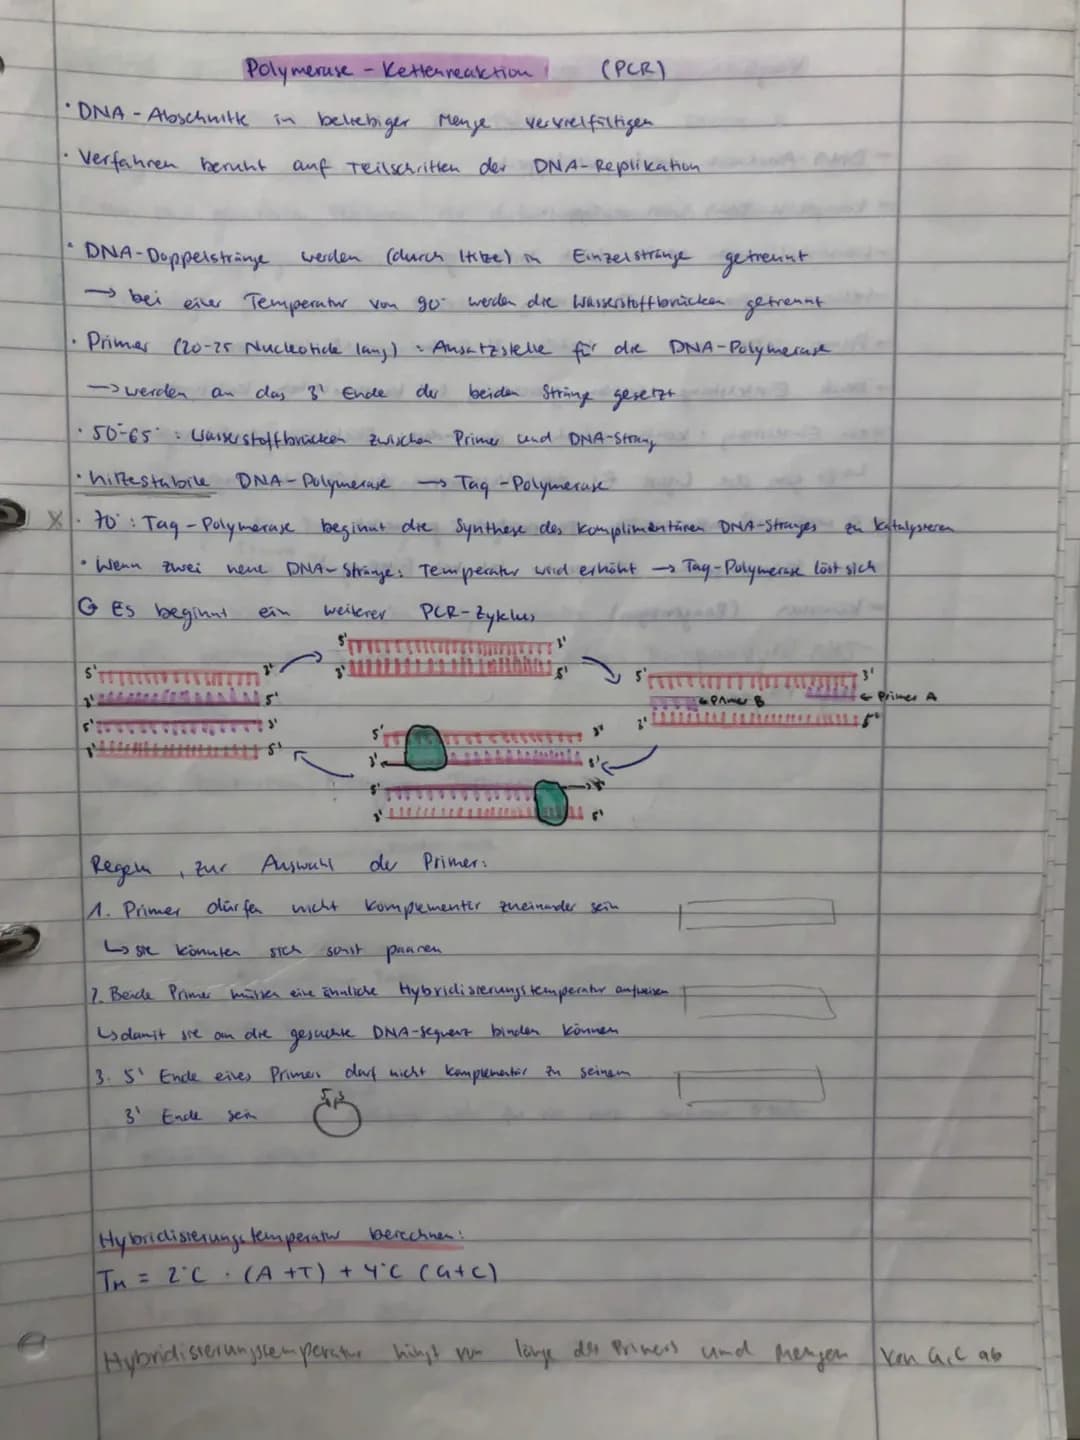 Polymerase - Kettenreaktion (PCR)
· DNA - Abschnitte in beliebiger Menge vervielfältigen
· Verfahren beruht auf Teilschritten der DNA-Replikation
· DNA-Doppelstränge werden (durch Hitze) in Einzelstränge getrennt
→ bei einer Temperatur von 90° werden die Wasserstoffbrücken getrennt
· Primer (20-25 Nucleotide lang) = Ansatzstelle für die DNA-Polymerase
→ werden an das 3' Ende der beiden Stränge gesetzt
· 50°-65° : Wasserstoffbrücken zwischen Primer und DNA-Strang
· hitzestabile DNA-Polymerase → Taq-Polymerase
x · 70° : Taq-Polymerase beginnt die Synthese des Komplimentären DNA-Stranges zu katalysieren
· Wenn zwei neue DNA-Stränge: Temperatur wird erhöht → Taq-Polymerase löst sich
Es beginnt ein weiterer PCR-Zyklus
5' 3'
3' 5'
5' 3'
3' 5'
5' 3'
3' 5'
5' 3'
← Primer B ← Primer A
3' 5'
5' 3'
3' 5'
5' 3'
3' 5'
Regeln, zur Auswahl der Primer:
1. Primer dürfen nicht komplementär zueinander sein
↳ sie könnten sich sonst paaren
2. Beide Primer müssen eine ähnliche Hybridisierungstemperatur aufweisen
↳ damit sie an die gesuchte DNA-Sequenz binden können
3. 5' Ende eines Primers darf nicht komplementär zu seinem
3' Ende sein
5' 3'
Hybridisierungstemperatur berechnen:
TM = 2°C · (A+T) + 4°C (G+C)
Hybridisierungstemperatur hängt von länge des Primers und Mengen von G,C ab